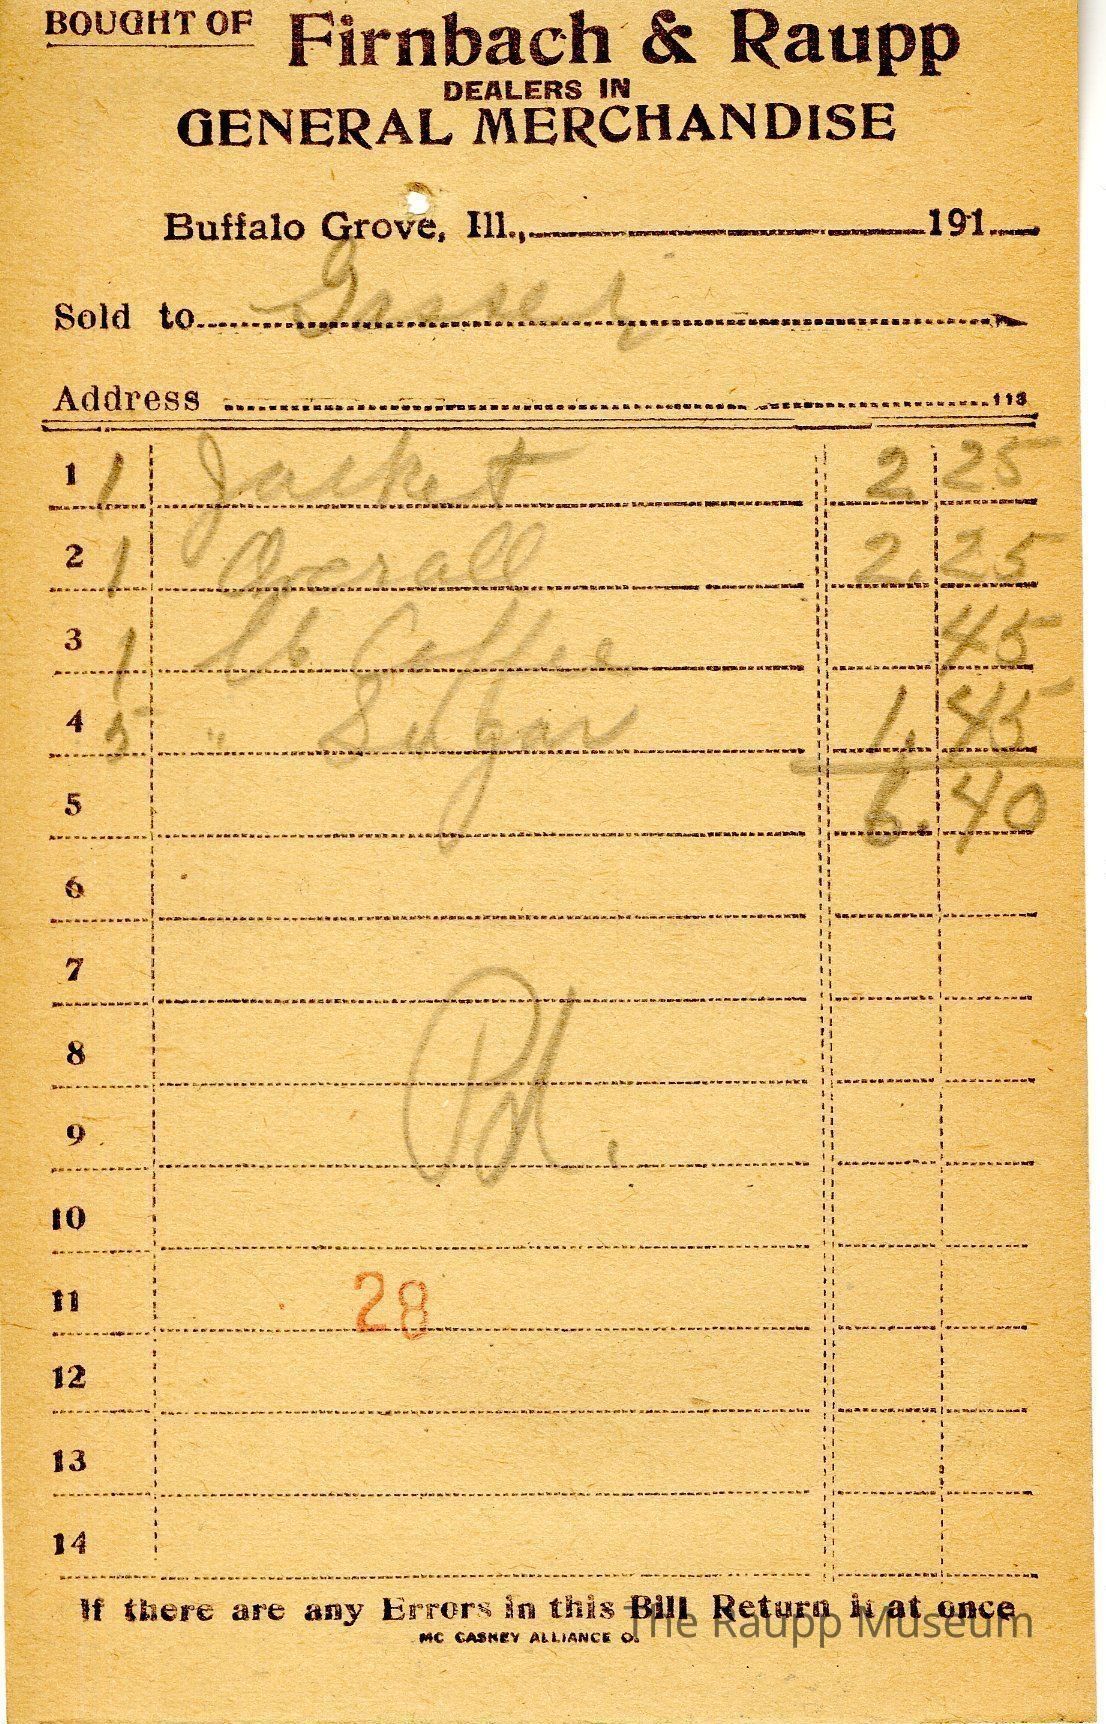 BOUGHT OF Firnbach & Raupp
DEALERS IN
GENERAL MERCHANDISE
Buffalo Grove, Ill., 191
Sold to
Address 113
1 1 Jacket 2 25
2 1 Overall 2.25
3 1 lb Coffee 45
4 5 " Sugar 1.45
5 6.40
6
7
8 Pd.
9
10
11 28
12
13
14
If there are any Errors in this Bill Return it at once
MC CASKEY ALLIANCE O.
The Raupp Museum